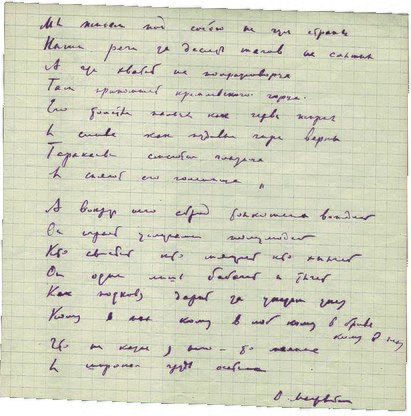 Мы живем под собою не чуя страны
Наши речи за десять шагов не слышны
А где хватит на полразговорца
Там припомнят кремлевского горца.
Его толстые пальцы как черви жирны
И слова как пудовые гири верны
Тараканьи смеются глазища
И сияют его голенища
А вокруг него сброд тонкошеих вождей
Он играет услугами полулюдей
Кто свистит кто мяучит кто хнычет
Он один лишь бабачит и тычет
Как подкову дарит за указом указ
Кому в пах кому в лоб кому в бровь
кому в глаз
Что ни казнь у него - то малина
И широкая грудь осетина
О. Мандельштам